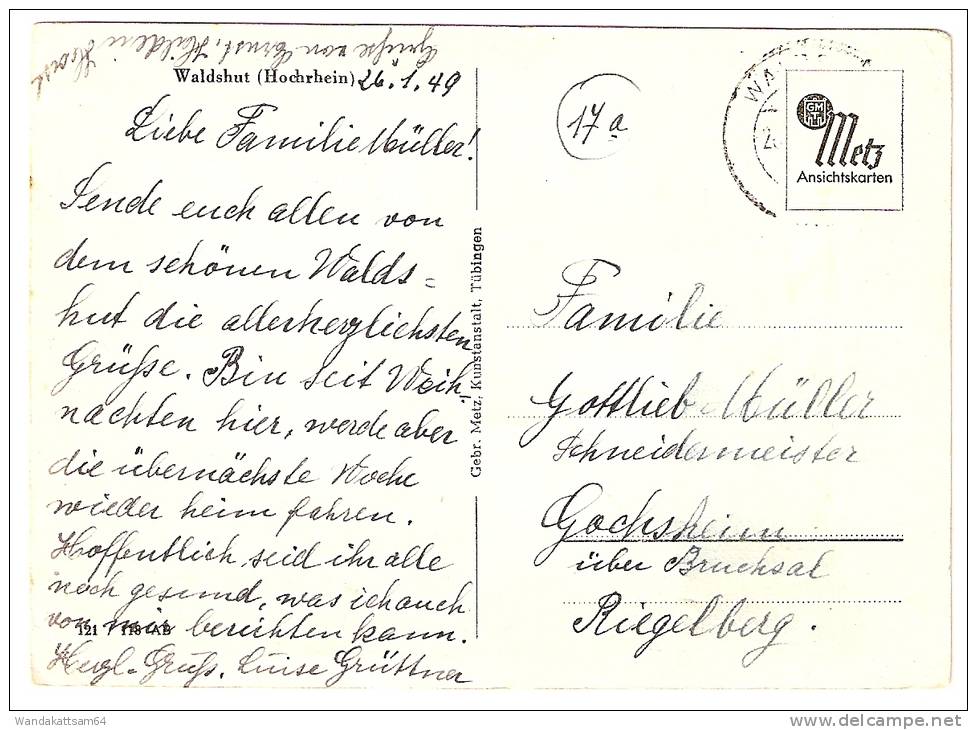 Grüße von Ernst,
Waldshut (Hochrhein) 26.1.49
Liebe Familie Müller!
Sende euch allen von
dem schönen Walds=
hut die allerherzlichsten
Grüße. Bin seit Weih-
nachten hier, werde aber
die übernächste Woche
wieder heim fahren.
Hoffentlich seid ihr alle
noch gesund, was ich auch
von mir berichten kann.
Herzl. Gruß. Luise Grüttner
121 / 118 AB
Gebr. Metz, Kunstanstalt, Tübingen
17a
WA
GM
T
Metz
Ansichtskarten
Familie
Gottlieb Müller
Schneidermeister
Gochsheim
über Bruchsal
Riegelberg.
Wandakattsam64
www.delcampe.net